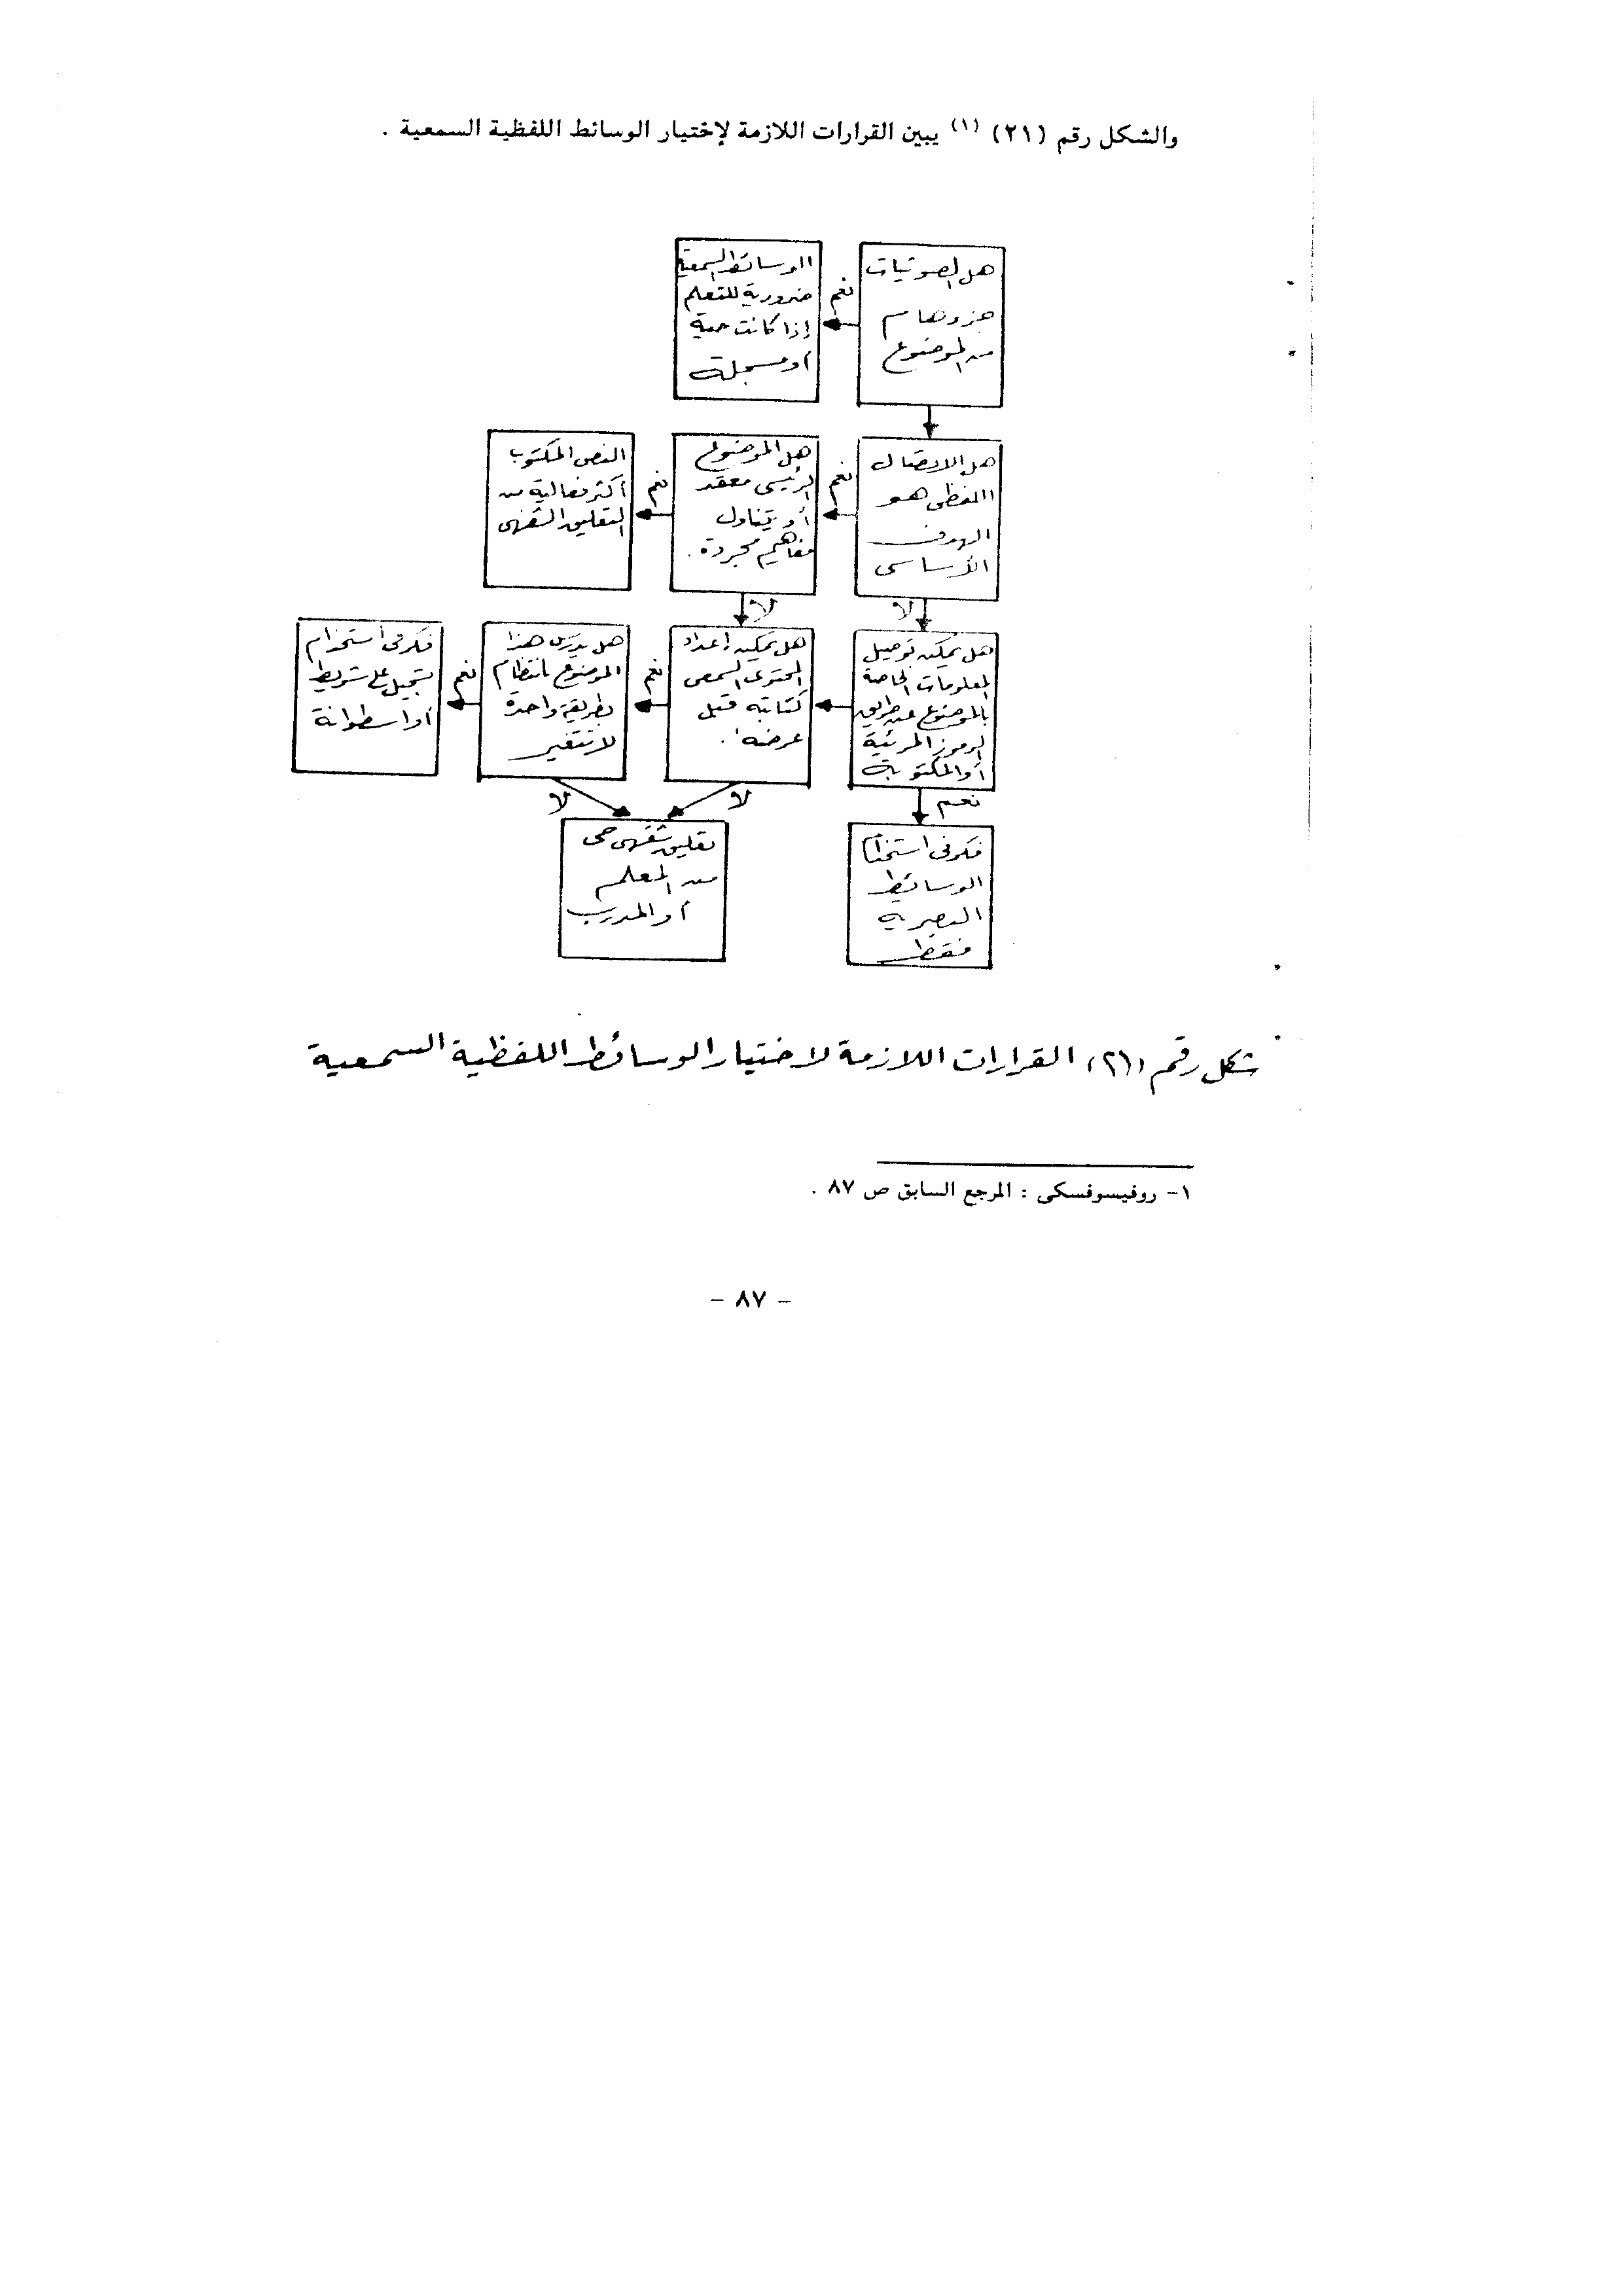 والشكل رقم (٢١) (١) يبين القرارات اللازمة لإختيار الوسائط اللفظية السمعية .
هل الصوتيات
جزء هام
من الموضوع
نعم
الوسائط السمعية
ضرورية للتعلم
إذا كانت حية
أو مسجلة
هل الاتصال
اللفظى هو
الهدف
الأساسى
نعم
هل الموضوع
الرئيسى معقد
أو يتناول
مفاهيم مجردة .
نعم
النص المكتوب
أكثر فعالية من
التعليق الشفهى
لا
لا
هل يمكن توصيل
المعلومات الخاصة
بالموضوع عن طريق
الرموز المرئية
أو المكتوبة
هل يمكن إعداد
المحتوى السمعى
كتابته قبل
عرضه .
نعم
هل يدرس هذا
الموضوع بانتظام
بطريقة واحدة
لا تتغير
نعم
فكر فى استخدام
تسجيل على شريط
أو اسطوانة
نعم
لا
لا
فكر فى استخدام
الوسائط
البصرية
فقط
تعليق شفهى حى
من المعلم
أو المدرب
شكل رقم (٢١) القرارات اللازمة لاختيار الوسائط اللفظية السمعية
١- روفيسوفسكى : المرجع السابق ص ٨٧ .
- ٨٧ -